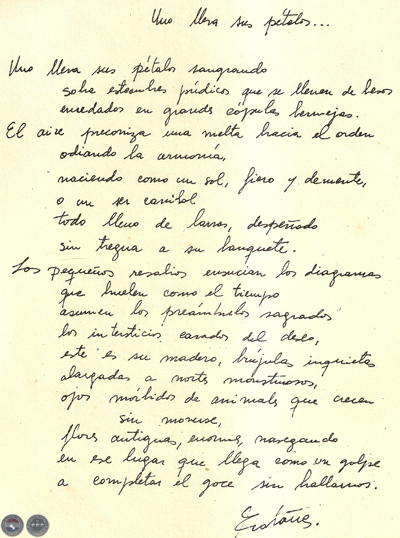 Uno lleva sus pétalos...
Uno lleva sus pétalos sangrando
sobre estambres púdicos que se llenan de besos
enredados en grandes cópulas bermejas.
El aire preconiza una vuelta hacia el orden
odiando la armonía,
naciendo como un sol, fiero y demente,
o un ser caníbal
todo lleno de larvas, despeñado
sin tregua a su banquete.
Los pequeños resabios ensucian los diagramas
que huelen como el tiempo
asumen los preámbulos sagrados
los intersticios, cavados del deseo,
este es su madero, brújulas inquietas
alargadas a nortes monstruosos,
ojos mórbidos de animales que crecen
sin morirse,
flores antiguas, enormes, navegando
en ese lugar que llega como un golpe
a completar el goce sin hallarnos.